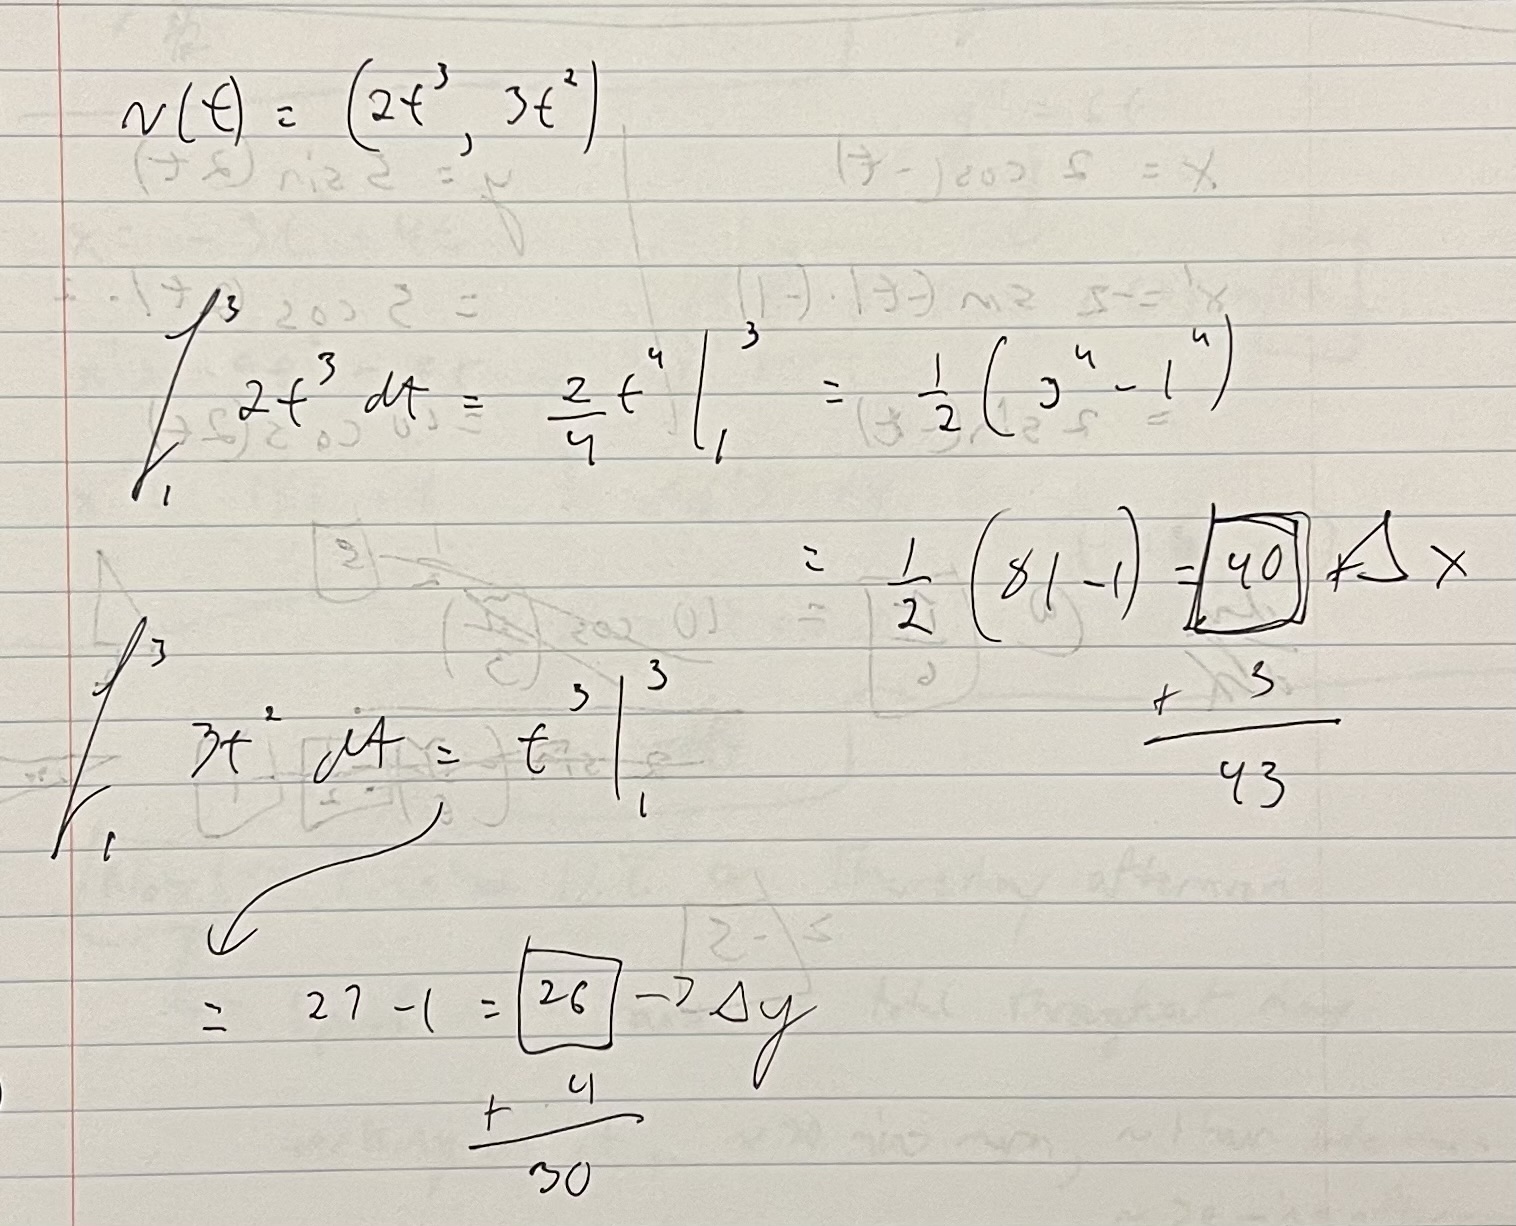 v(t) = (2t³, 3t²)
∫₁³ 2t³ dt = 2/4 t⁴ |₁³ = 1/2 (3⁴ - 1⁴)
= 1/2 (81 - 1) = 40 Δx
+ 3
43
∫₁³ 3t² dt = t³ |₁³
= 27 - 1 = 26 → Δy
+ 4
30